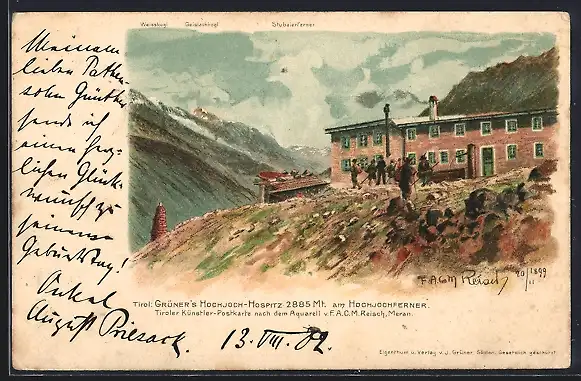 Weisskogl Geislachkogl Stubaierferner
Meinem
lieben Pathen-
sohn Günther
sende ich
einen herz-
lichen Glück-
wunsch zu
seinem
Geburtstag!
Onkel
August Priesack.
13. VIII. 02.
F.A.C.M Reisch 20/11 1899
Tirol: GRÜNER'S HOCHJOCH-HOSPITZ 2885 Mt. am HOCHJOCHFERNER.
Tiroler Künstler-Postkarte nach dem Aquarell v. F.A.C.M. Reisch, Meran.
Eigenthum u. Verlag v. J. Grüner, Sölden. Gesetzlich geschützt